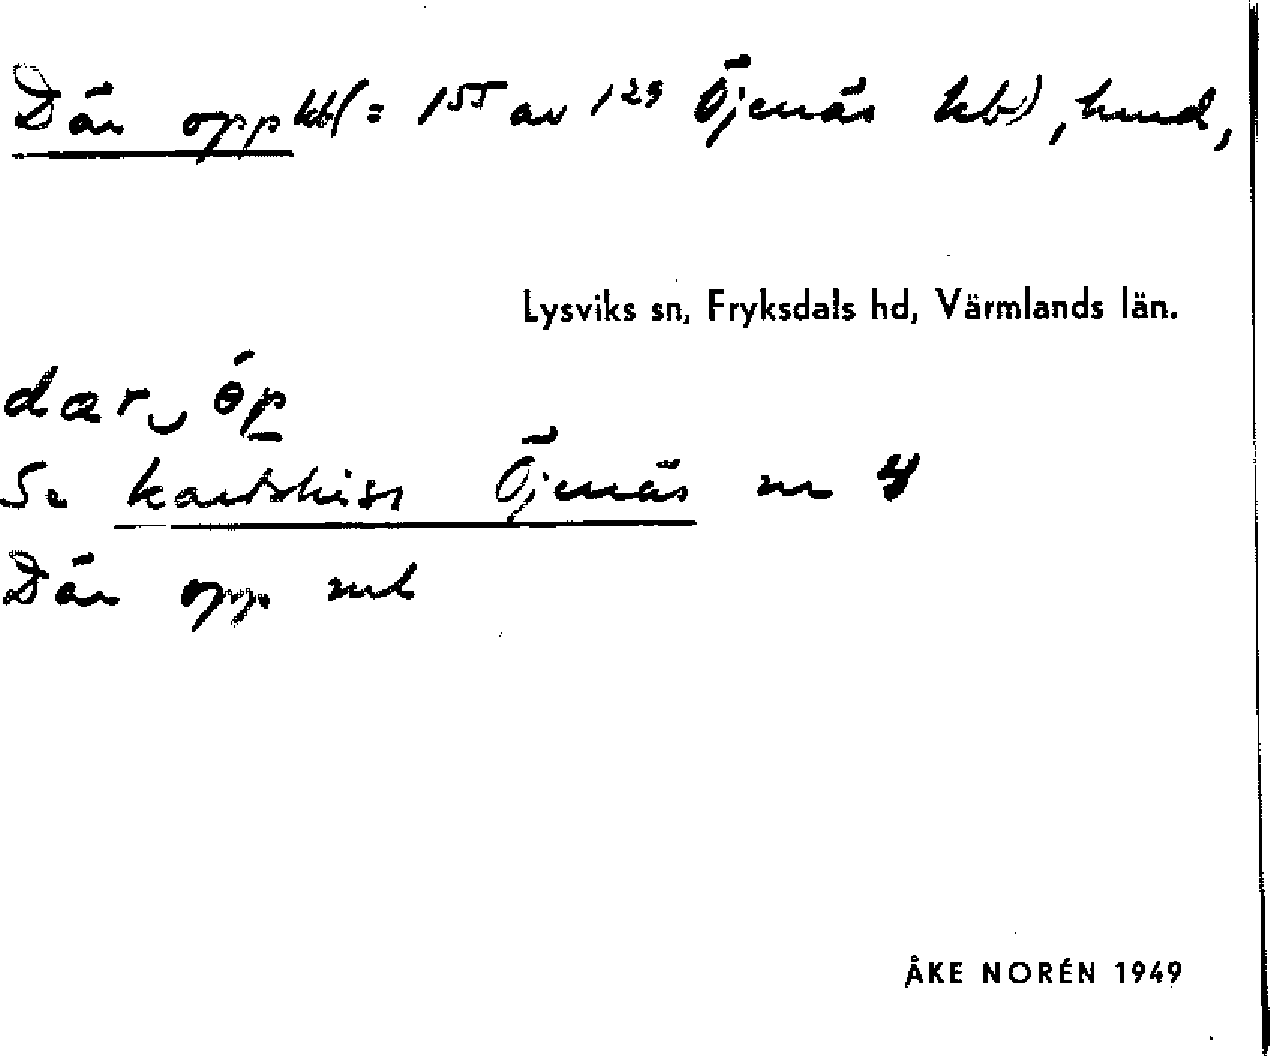 Där opp kb (= 1⁵⁵ av 1²⁹ Öjenäs kb), hmd,
Lysviks sn, Fryksdals hd, Värmlands län.
Se kartskiss Öjenäs nr 4
Där opp
ÅKE NORÉN 1949